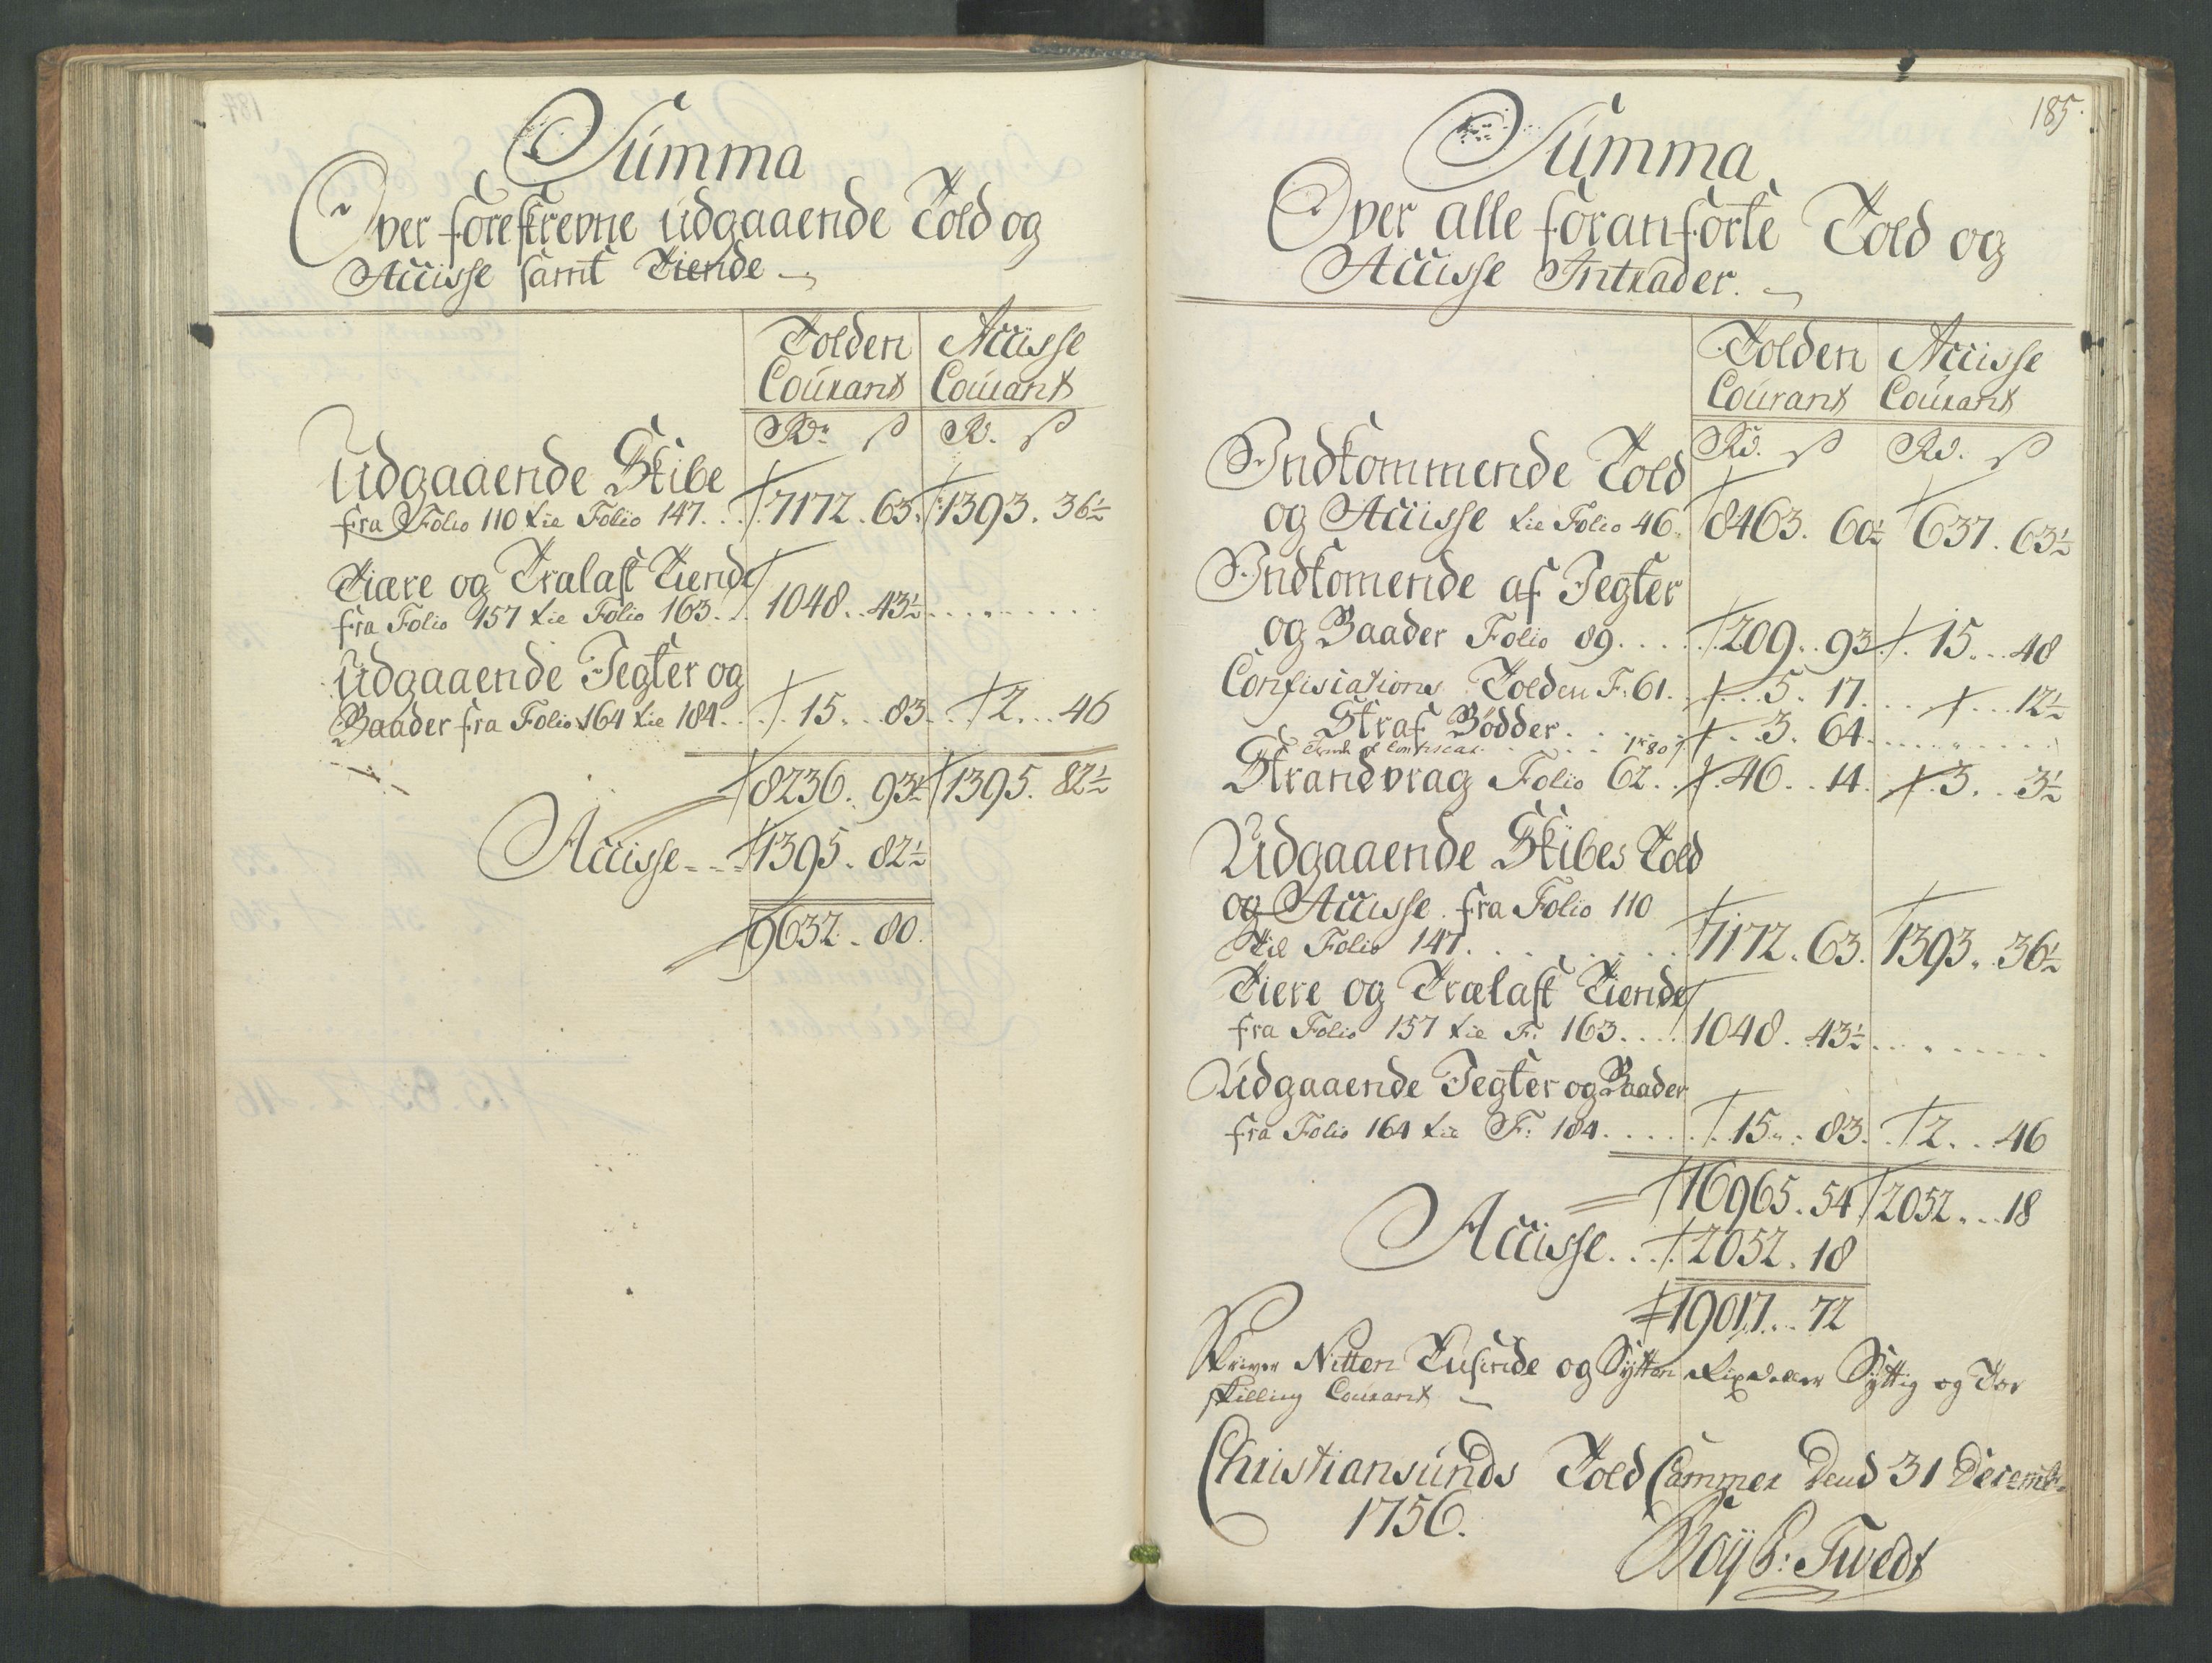 Summa
Over foreskrevne udgaaende Told og
Accisse samt Tiende
Tolden Accisse
Courant Courant
Rdr ß Rd. ß
Udgaaende Skibe
fra Folio 110 til Folio 147 7172. 63. 1393. 36½
Tiære og Tralast Tiende
fra Folio 157 til Folio 163 1048. 43½
Udgaaende Jegter og
Baader fra Folio 164 til 184 15. 83. 2. 46
8236. 93½ 1395. 82½
Accisse 1395. 82½
9632. 80.
185.
Summa
Over alle foranførte Told og
Accisse Intrader.
Tolden Accisse
Courant Courant
Rd. ß Rd. ß
Indkommende Told
og Accisse til Folio 46. 8463. 60½ 637. 63½
Indkomende af Jegter
og Baader Folio 89. 209. 93. 15. 48
Confiscations Tolden F. 61. 5. 17. 12½
Straf Bødder. 3. 64.
Strandvrag Folio 62. 46. 14. 3. 3½
Udgaaende Skibes Told
og Accisse fra Folio 110
til Folio 147. 7172. 63. 1393. 36½
Tiere og Trælast Tiende
fra Folio 157 til F. 163. 1048. 43½
Udgaaende Jegter og Baader
fra Folio 164 til F: 184. 15. 83. 2. 46
16965. 54. 2052. 18
Accisse. 2052. 18
19017. 72
Skriver Nitten Tusinde og Sÿtten Rixdaler Sÿttig og Toe
skilling Courant
Christiansunds Told Cammer Dend 31 Decemb.
1756.
Boÿ P: Tvedt